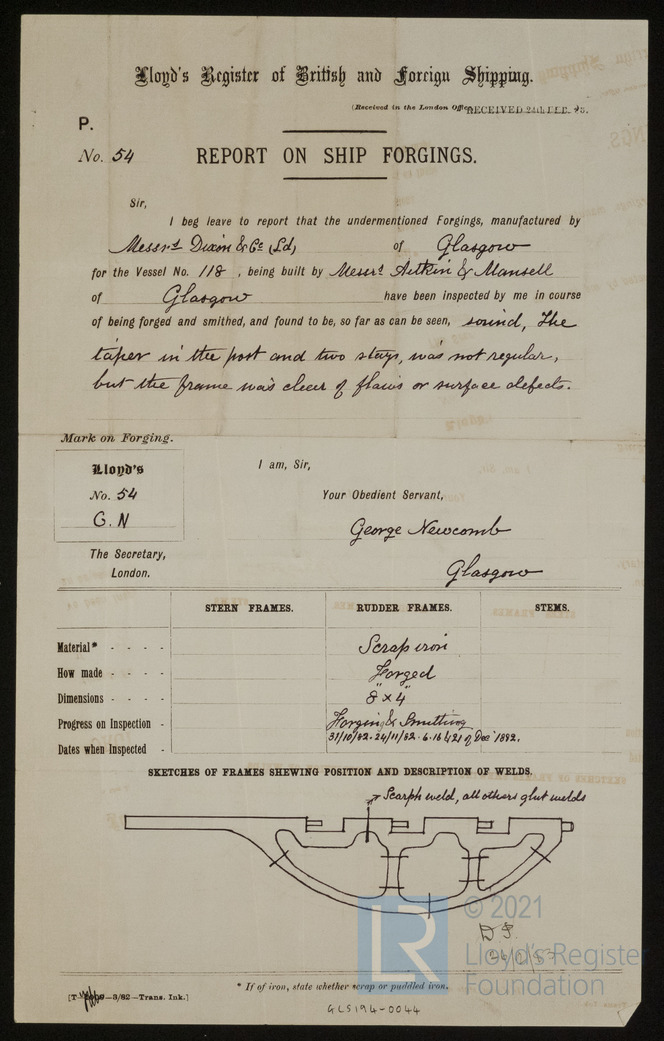 Lloyd's Register of British and Foreign Shipping.
(Received in the London Office
RECEIVED 2 DEC.
P.
No. 54
REPORT ON SHIP FORGINGS.
Sir,
I beg leave to report that the undermentioned Forgings, manufactured by
Messrs Dixon & Co (Ld) of Glasgow
for the Vessel No. 118, being built by Messrs Aitkin & Mansell
of Glasgow have been inspected by me in course
of being forged and smithed, and found to be, so far as can be seen, sound, The
taper in the post and two stays, was not regular,
but the frame was clear of flaws or surface defects.
Mark on Forging.
Lloyd's
No. 54
G. N
I am, Sir,
Your Obedient Servant,
George Newcomb
Glasgow
The Secretary,
London.
STERN FRAMES. RUDDER FRAMES. STEMS.
Material* - - - - Scrap iron
How made - - - - Forged
Dimensions - - - - 8" × 4"
Progress on Inspection - Forging & Smithing
Dates when Inspected - 31/10/82. 24/11/82. 6. 16 & 21 of Dec 1882.
SKETCHES OF FRAMES SHEWING POSITION AND DESCRIPTION OF WELDS.
Scarph weld, all others glut welds
© 2021
LR
Lloyd's Register
Foundation
* If of iron, state whether scrap or puddled iron.
—3/82—Trans. Ink.]
GLS194-0044